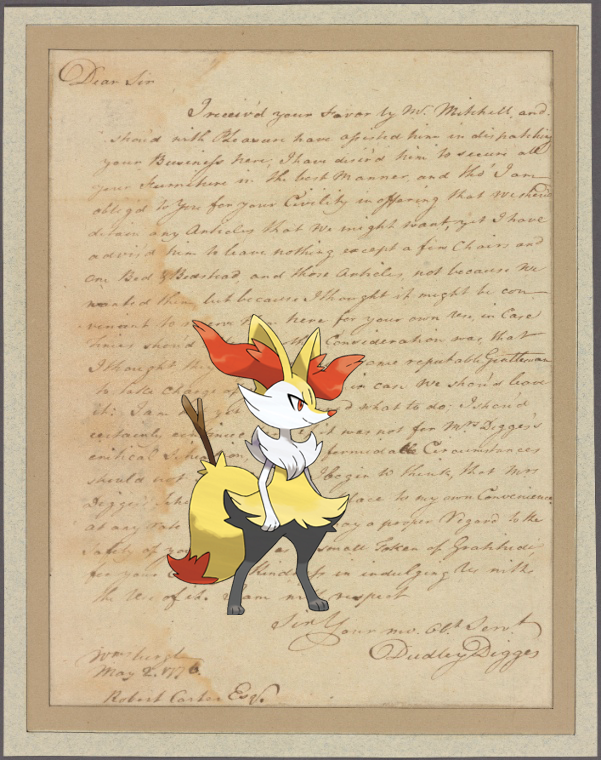 Dear Sir
I receiv'd your Favor by Mr. Mitchell, and
shou'd with Pleasure have assisted him in dispatching
your Business here, I have desir'd him to secure all
your Furniture in the best Manner, and tho' I am
oblig'd to You for your Civility in offering that We shou'd
detain any Articles that We might want, yet I have
advis'd him to leave nothing except a few Chairs and
One Bed & Bedstead and those Articles, not because We
wanted them, but because I thought it might be con
venient to here for your own Use, in Case
Times shou'd Consideration was, that
I thought the some reputable Gentleman
to take Charge of in case We shou'd lead
it: I am what to do; I shou'd
certainly it was not for Mrs. Digges's
critical formidable Circumstances
should not begin to think, that Mrs
Digges place to my own Convenience
at any rate pay a proper Regard to the
Safety of you a small Token of Gratitude
for your Kindness in indulging Us with
the Use of the I am with respect
Sir Your mo. Obt. Servt
Dudley Digges
Wmsburgh
May 2. 1776
Robert Carter Esqr.